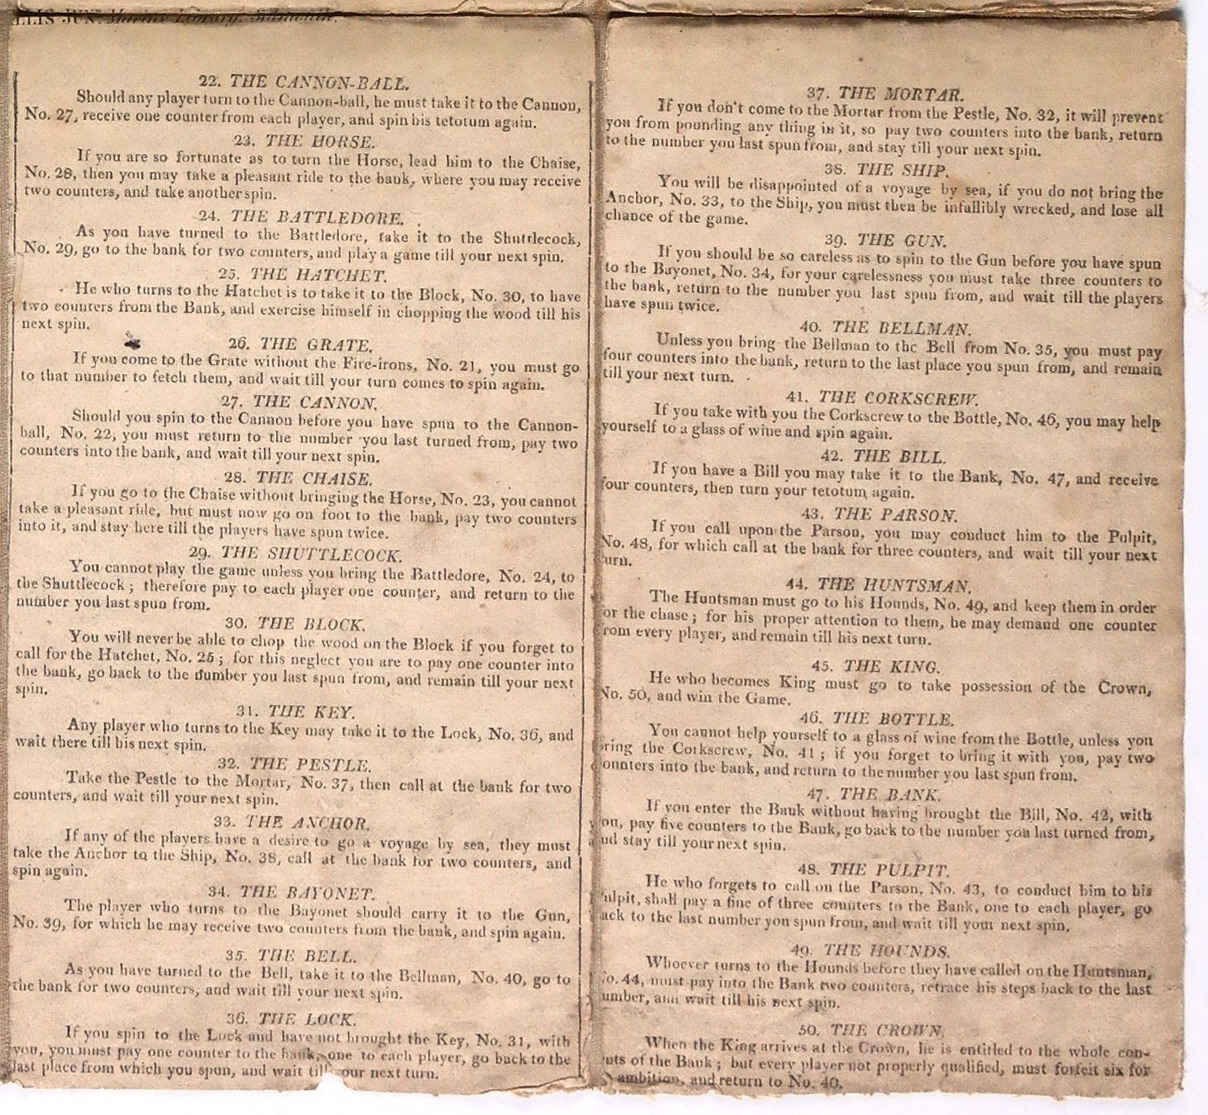 LLIS JUNR. Marine Library, Sidmouth.
22. THE CANNON-BALL.
Should any player turn to the Cannon-ball, he must take it to the Cannon,
No. 27, receive one counter from each player, and spin his tetotum again.
23. THE HORSE.
If you are so fortunate as to turn the Horse, lead him to the Chaise,
No. 28, then you may take a pleasant ride to the bank, where you may receive
two counters, and take another spin.
24. THE BATTLEDORE.
As you have turned to the Battledore, take it to the Shuttlecock,
No. 29, go to the bank for two counters, and play a game till your next spin.
25. THE HATCHET.
He who turns to the Hatchet is to take it to the Block, No. 30, to have
two counters from the Bank, and exercise himself in chopping the wood till his
next spin.
26. THE GRATE.
If you come to the Grate without the Fire-irons, No. 21, you must go
to that number to fetch them, and wait till your turn comes to spin again.
27. THE CANNON.
Should you spin to the Cannon before you have spun to the Cannon-
ball, No. 22, you must return to the number you last turned from, pay two
counters into the bank, and wait till your next spin.
28. THE CHAISE.
If you go to the Chaise without bringing the Horse, No. 23, you cannot
take a pleasant ride, but must now go on foot to the bank, pay two counters
into it, and stay here till the players have spun twice.
29. THE SHUTTLECOCK.
You cannot play the game unless you bring the Battledore, No. 24, to
the Shuttlecock; therefore pay to each player one counter, and return to the
number you last spun from.
30. THE BLOCK.
You will never be able to chop the wood on the Block if you forget to
call for the Hatchet, No. 25; for this neglect you are to pay one counter into
the bank, go back to the number you last spun from, and remain till your next
spin.
31. THE KEY.
Any player who turns to the Key may take it to the Lock, No. 36, and
wait there till his next spin.
32. THE PESTLE.
Take the Pestle to the Mortar, No. 37, then call at the bank for two
counters, and wait till your next spin.
33. THE ANCHOR.
If any of the players have a desire to go a voyage by sea, they must
take the Anchor to the Ship, No. 38, call at the bank for two counters, and
spin again.
34. THE BAYONET.
The player who turns to the Bayonet should carry it to the Gun,
No. 39, for which he may receive two counters from the bank, and spin again.
35. THE BELL.
As you have turned to the Bell, take it to the Bellman, No. 40, go to
the bank for two counters, and wait till your next spin.
36. THE LOCK.
If you spin to the Lock and have not brought the Key, No. 31, with
you, you must pay one counter to the bank, one to each player, go back to the
last place from which you spun, and wait till your next turn.
37. THE MORTAR.
If you don't come to the Mortar from the Pestle, No. 32, it will prevent
you from pounding any thing in it, so pay two counters into the bank, return
to the number you last spun from, and stay till your next spin.
38. THE SHIP.
You will be disappointed of a voyage by sea, if you do not bring the
Anchor, No. 33, to the Ship, you must then be infallibly wrecked, and lose all
chance of the game.
39. THE GUN.
If you should be so careless as to spin to the Gun before you have spun
to the Bayonet, No. 34, for your carelessness you must take three counters to
the bank, return to the number you last spun from, and wait till the players
have spun twice.
40. THE BELLMAN.
Unless you bring the Bellman to the Bell from No. 35, you must pay
four counters into the bank, return to the last place you spun from, and remain
till your next turn.
41. THE CORKSCREW.
If you take with you the Corkscrew to the Bottle, No. 46, you may help
yourself to a glass of wine and spin again.
42. THE BILL.
If you have a Bill you may take it to the Bank, No. 47, and receive
four counters, then turn your tetotum again.
43. THE PARSON.
If you call upon the Parson, you may conduct him to the Pulpit,
No. 48, for which call at the bank for three counters, and wait till your next
urn.
44. THE HUNTSMAN.
The Huntsman must go to his Hounds, No. 49, and keep them in order
or the chase; for his proper attention to them, he may demand one counter
rom every player, and remain till his next turn.
45. THE KING.
He who becomes King must go to take possession of the Crown,
No. 50, and win the Game.
46. THE BOTTLE.
You cannot help yourself to a glass of wine from the Bottle, unless you
ring the Corkscrew, No. 41; if you forget to bring it with you, pay two
ounters into the bank, and return to the number you last spun from.
47. THE BANK.
If you enter the Bank without having brought the Bill, No. 42, with
you, pay five counters to the Bank, go back to the number you last turned from,
and stay till your next spin.
48. THE PULPIT.
He who forgets to call on the Parson, No. 43, to conduct him to his
ulpit, shall pay a fine of three counters to the Bank, one to each player, go
ack to the last number you spun from, and wait till your next spin.
49. THE HOUNDS.
Whoever turns to the Hounds before they have called on the Huntsman,
No. 44, must pay into the Bank two counters, retrace his steps back to the last
umber, and wait till his next spin.
50. THE CROWN.
When the King arrives at the Crown, he is entitled to the whole con-
nts of the Bank; but every player not properly qualified, must forfeit six for
ambition, and return to No. 40.